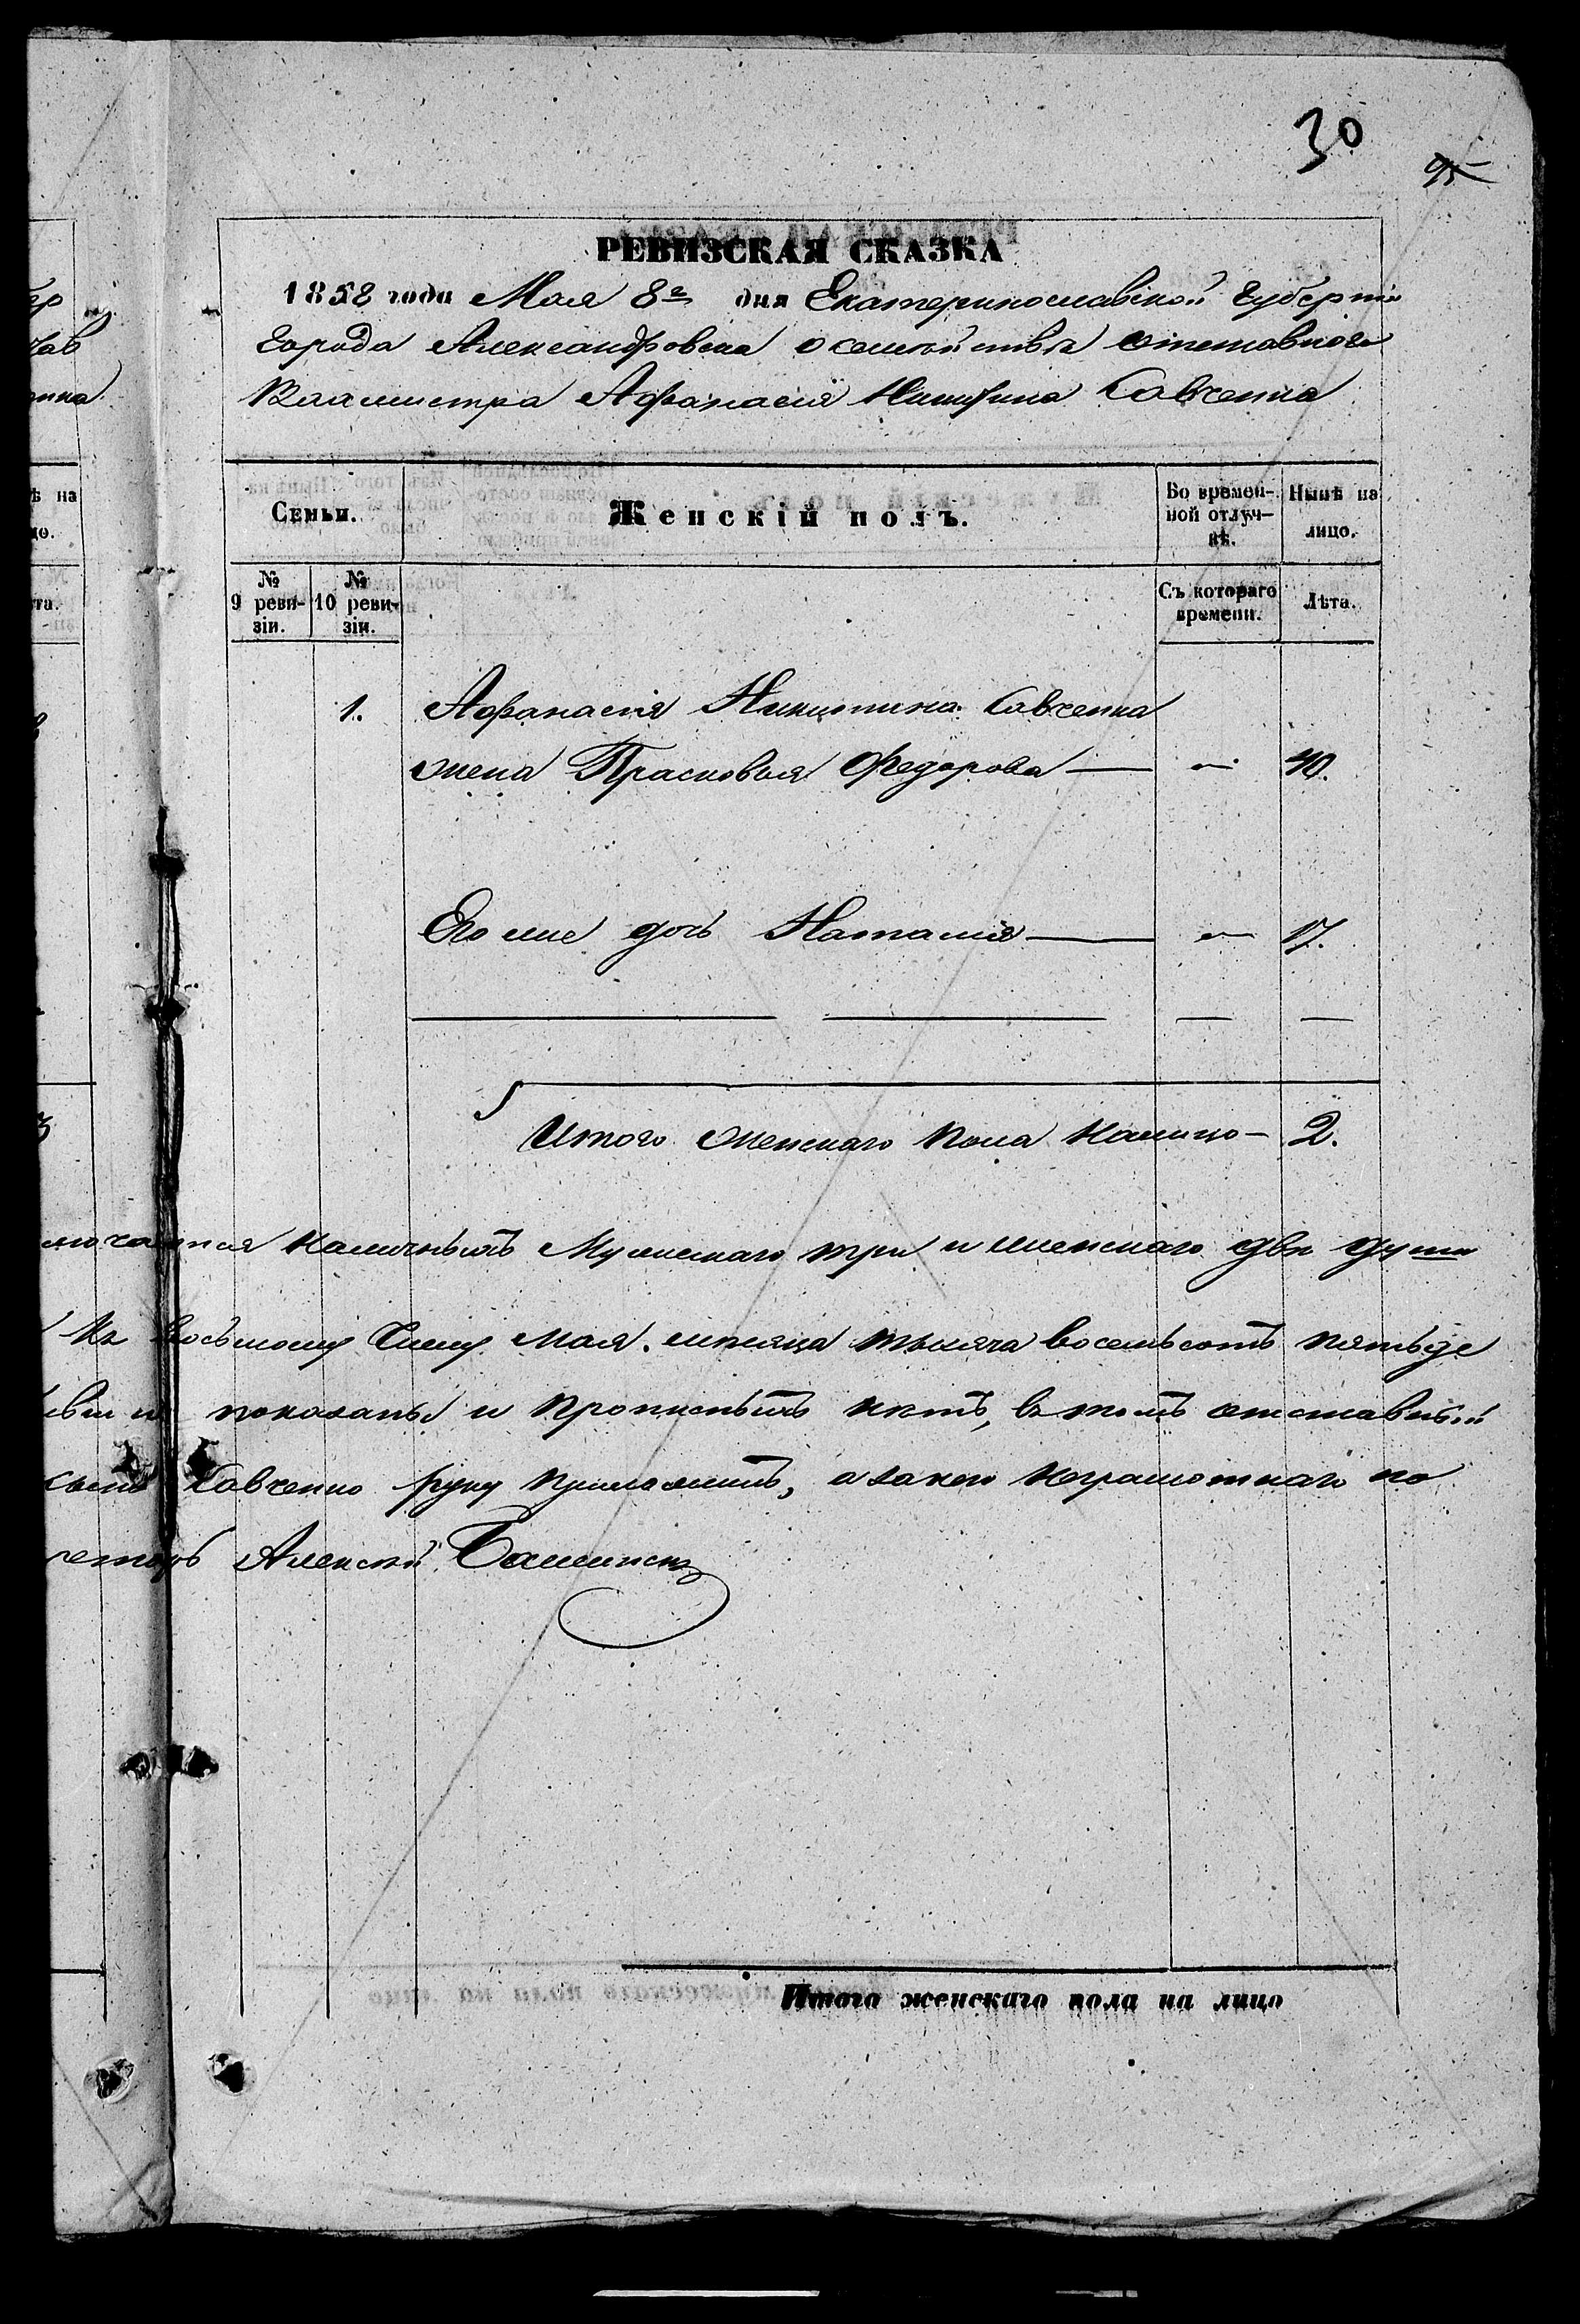 30
95
РЕВИЗСКАЯ СКАЗКА
1858 года Мая 8го дня Екатеринославской губерніи
города Александровска о семействѣ отставного
Вахмистра Афанасія Никитина Савченка
Семьи.
Женскій полъ.
Во времен-
ной отлуч-
кѣ.
Нынѣ на
лицо.
№
9 реви-
зіи.
№
10 реви-
зіи.
Съ котораго
времени.
Лѣта.
1. Афанасія Никитина Савченка
жена Прасковья Федорова — — 40.
Его же дочь Наталія — — 17.
Итого женскаго пола налицо — 2.
наличныхъ Мужескаго три и женскаго двѣ души
Къ восьмому Числу мая мѣсяца тысяча восемьсотъ пятьде
показаны и прописныхъ нѣтъ, въ томъ отставный
Савченко руку приложилъ, а за него неграмотнаго по
Алексѣй
Итого женскаго пола на лицо